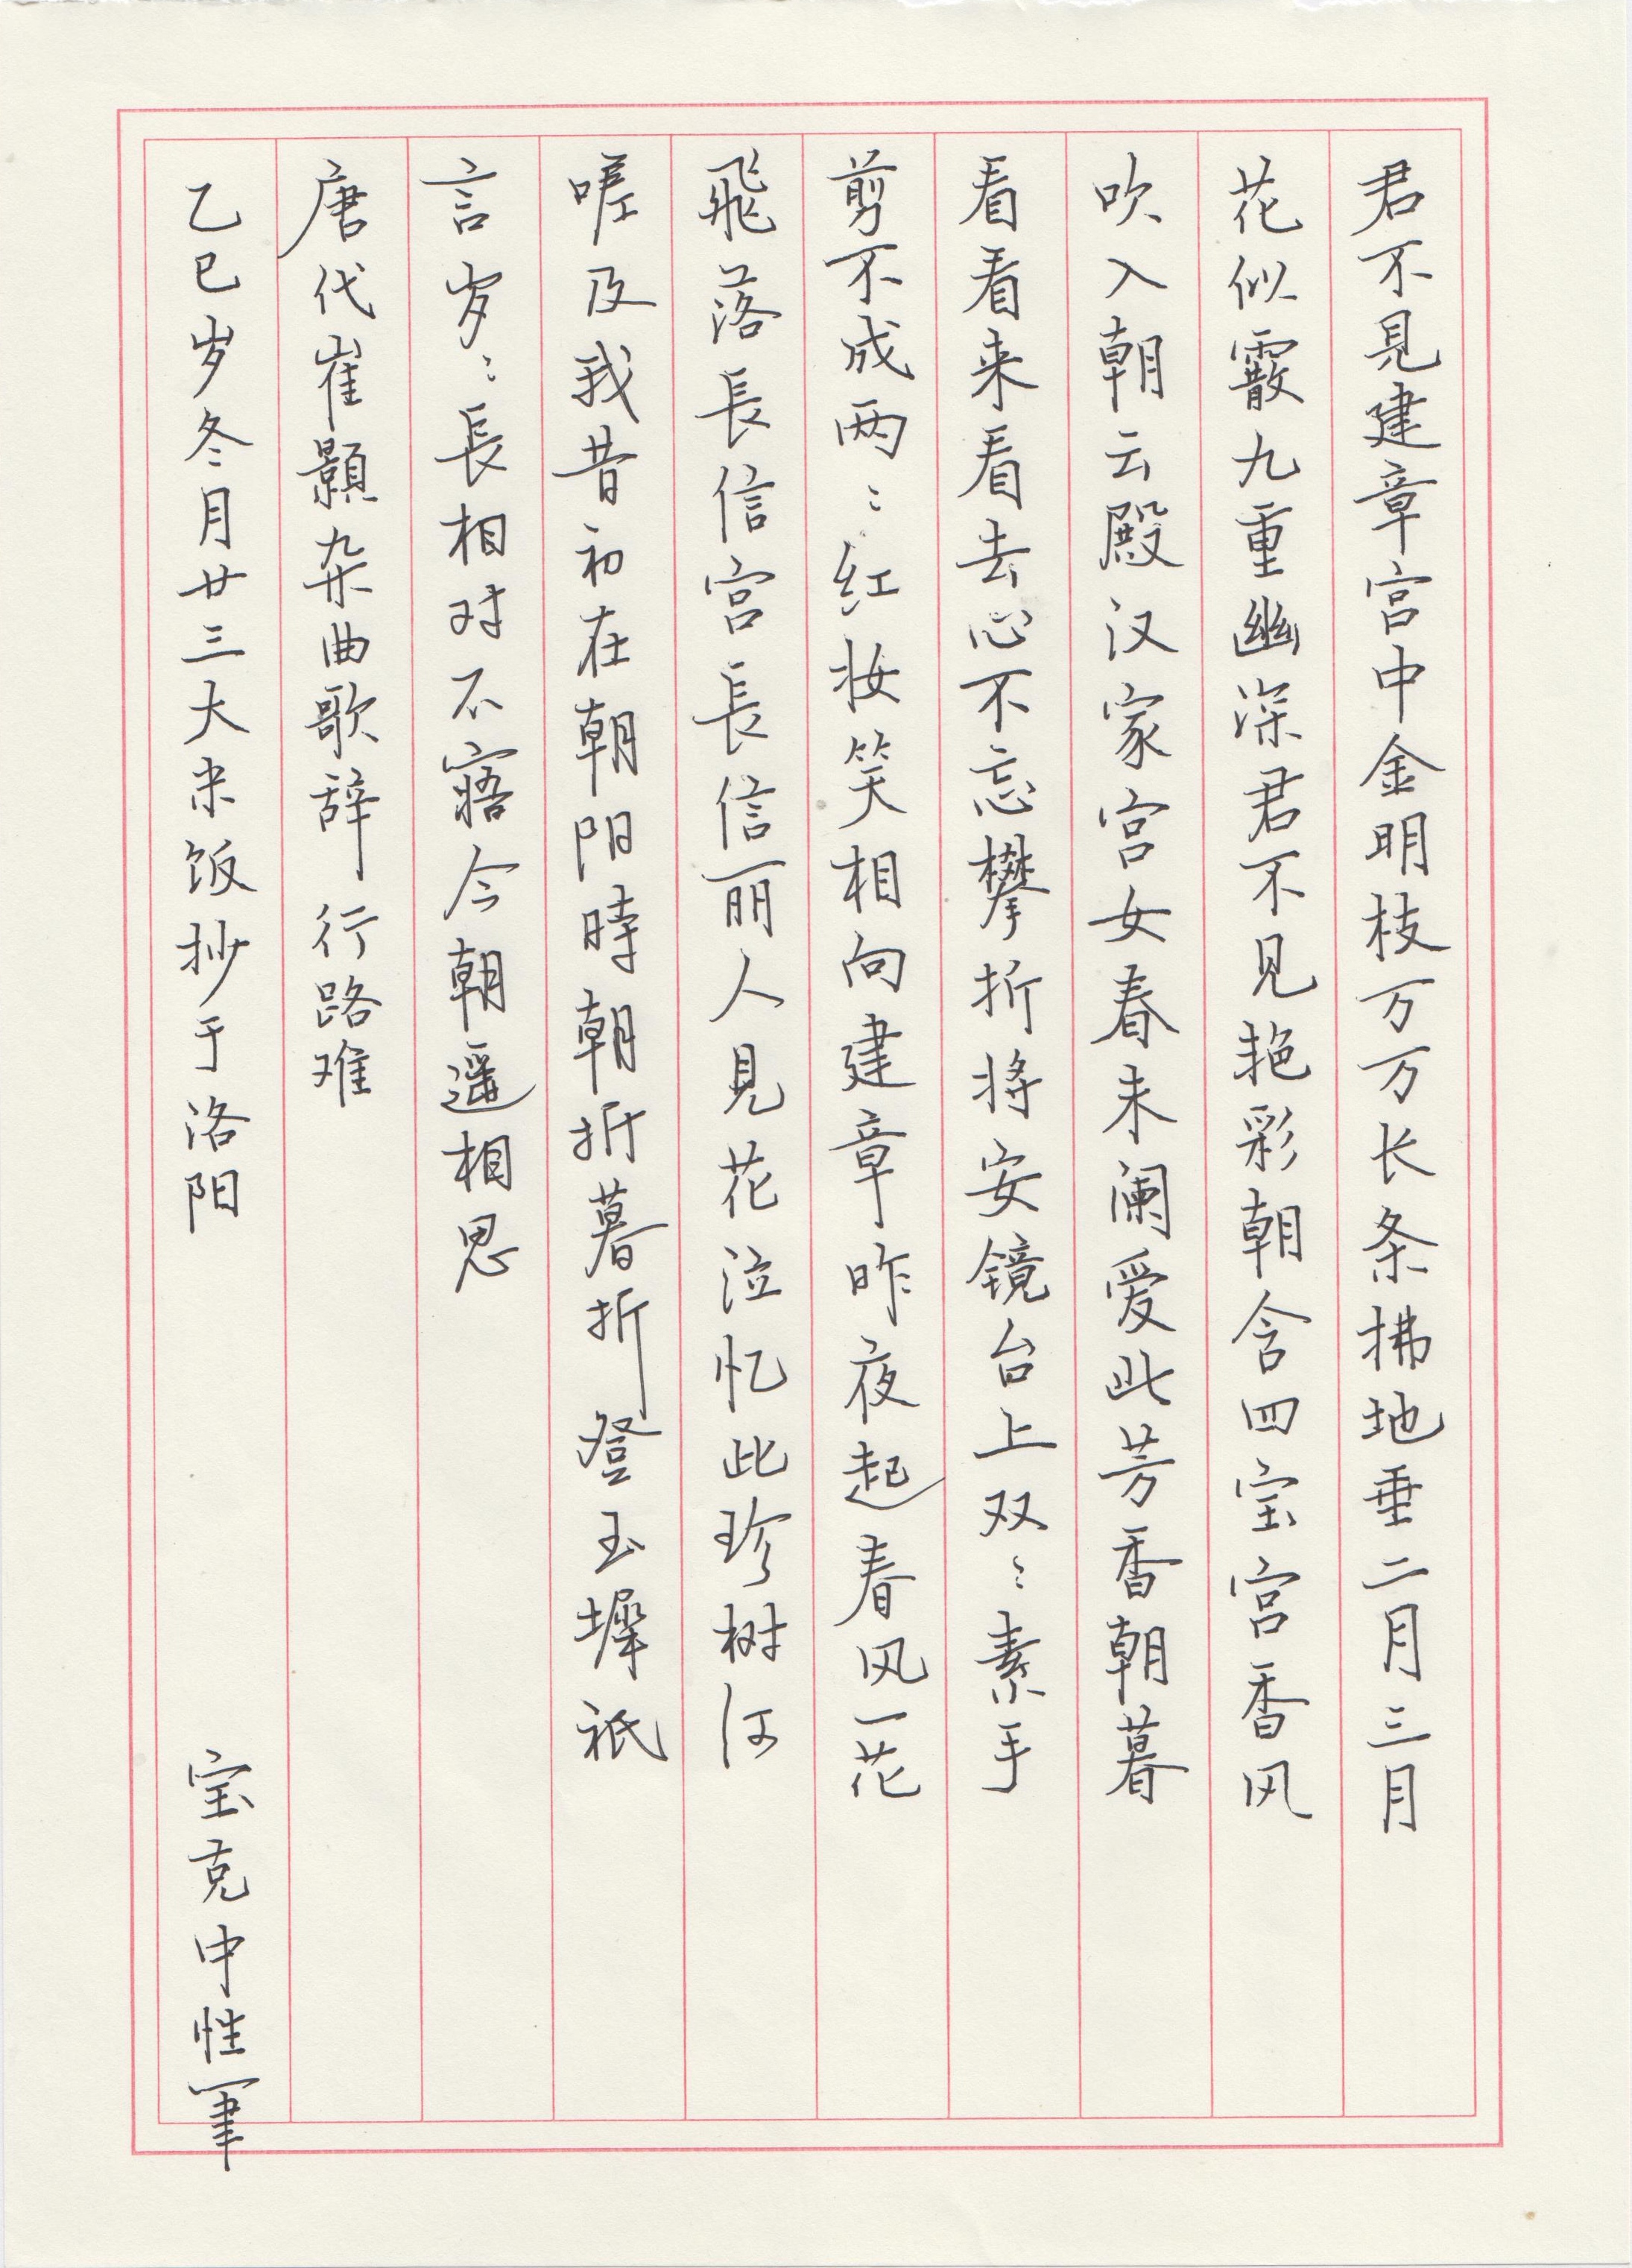 君不見建章宫中金明枝万万长条拂地垂二月三月
花似霰九重幽深君不见艳彩朝含四宝宫香风
吹入朝云殿汉家宫女春未阑爱此芳香朝暮
看看来看去心不忘攀折将安镜台上双〻素手
剪不成两〻红妆笑相向建章昨夜起春风一花
飛落長信宫長信丽人見花泣忆此珍树何
嗟及我昔初在朝阳時朝折暮折登玉墀祇
言岁〻長相对不寤今朝遥相思
唐代崔顥杂曲歌辞行路难
乙巳岁冬月廿三大米饭抄于洛阳 宝克中性筆